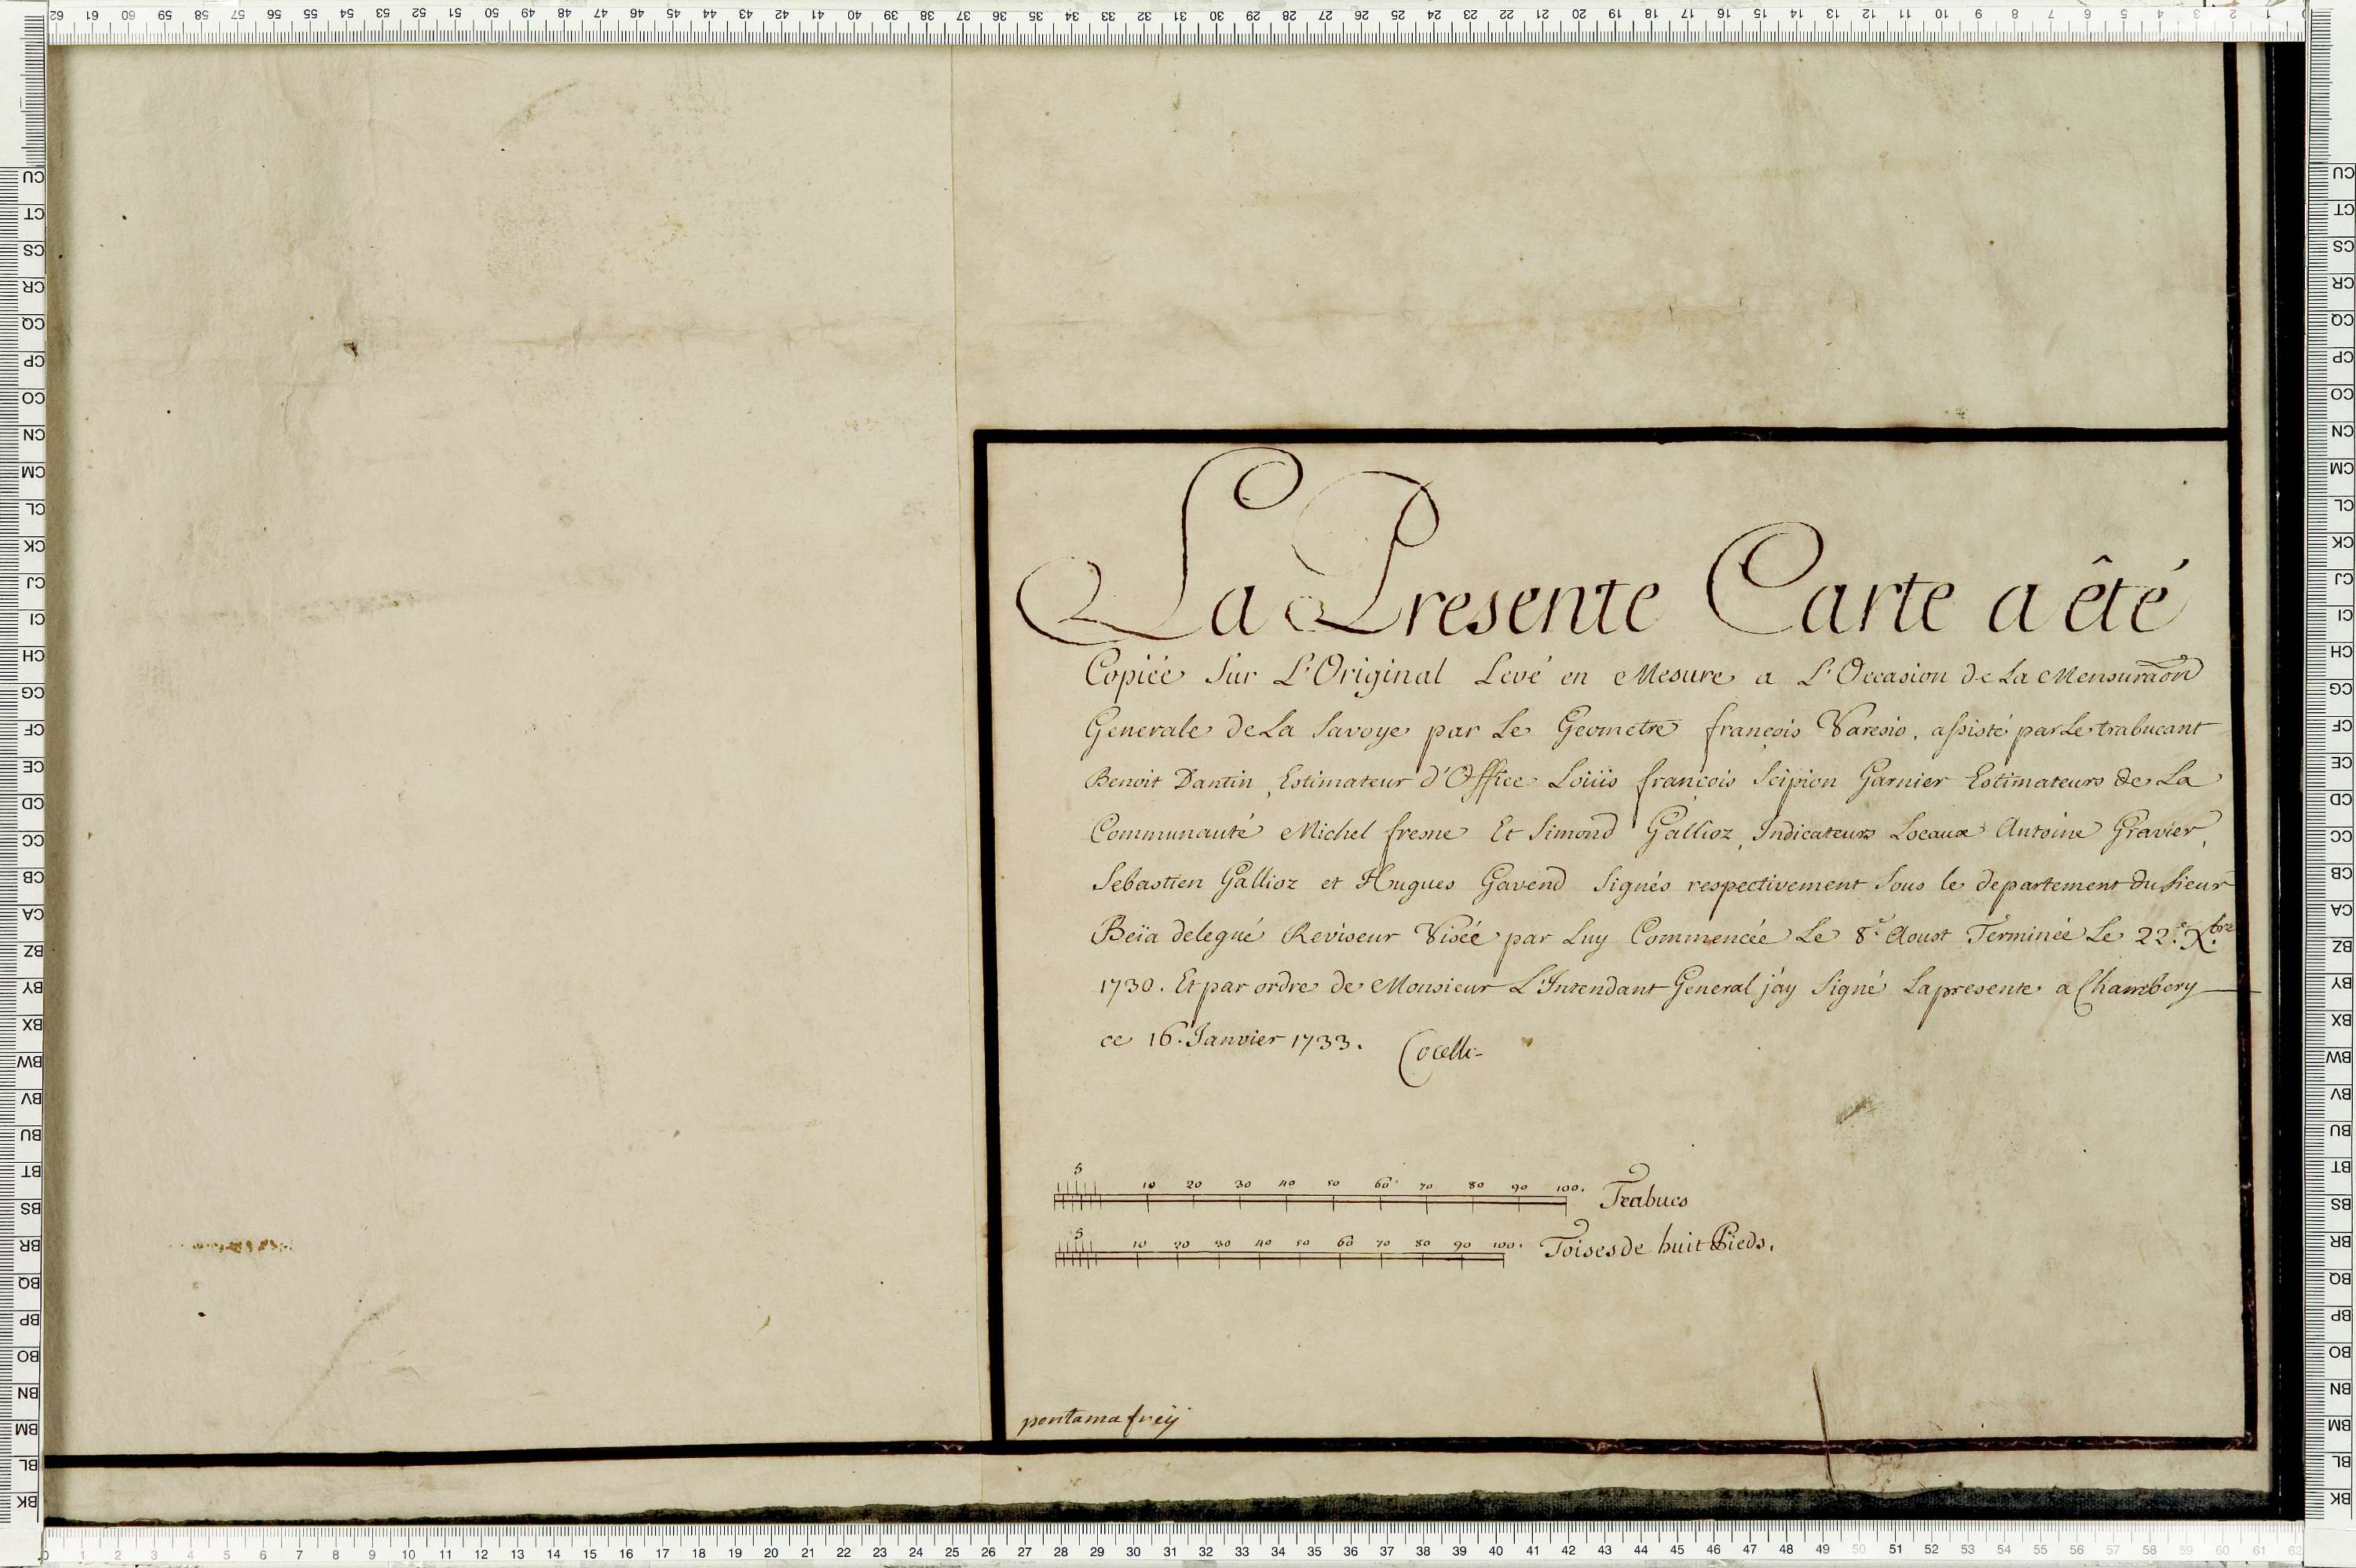 La Presente Carte a êté
Copiée Sur L'Original Levé en Mesure a L'Occasion de La Mensuraõn
Generale de La Savoye par Le Geometre françois Varesio, assisté par Le trabucant
Benoit Dantin, Estimateur d'Office Loüis françois Scipion Garnier Estimateurs de La
Communauté Michel fresne Et Simond Gallioz, Indicateurs Locaux Antoine Gravier,
Sebastien Gallioz et Hugues Gavend Signés respectivement Sous le departement du Sieur
Beïa delegué Reviseur Visée par Luy Commencée Le 8.e Aoust Terminée Le 22.e Xbre
1730. Et par ordre de Monsieur L'Intendant General j'ay Signé La presente a Chambery
ce 16. Janvier 1733. Cocelli
5 10 20 30 40 50 60 70 80 90 100. Trabucs
5 10 20 30 40 50 60 70 80 90 100. Toises de huit Pieds.
pontamafreÿ